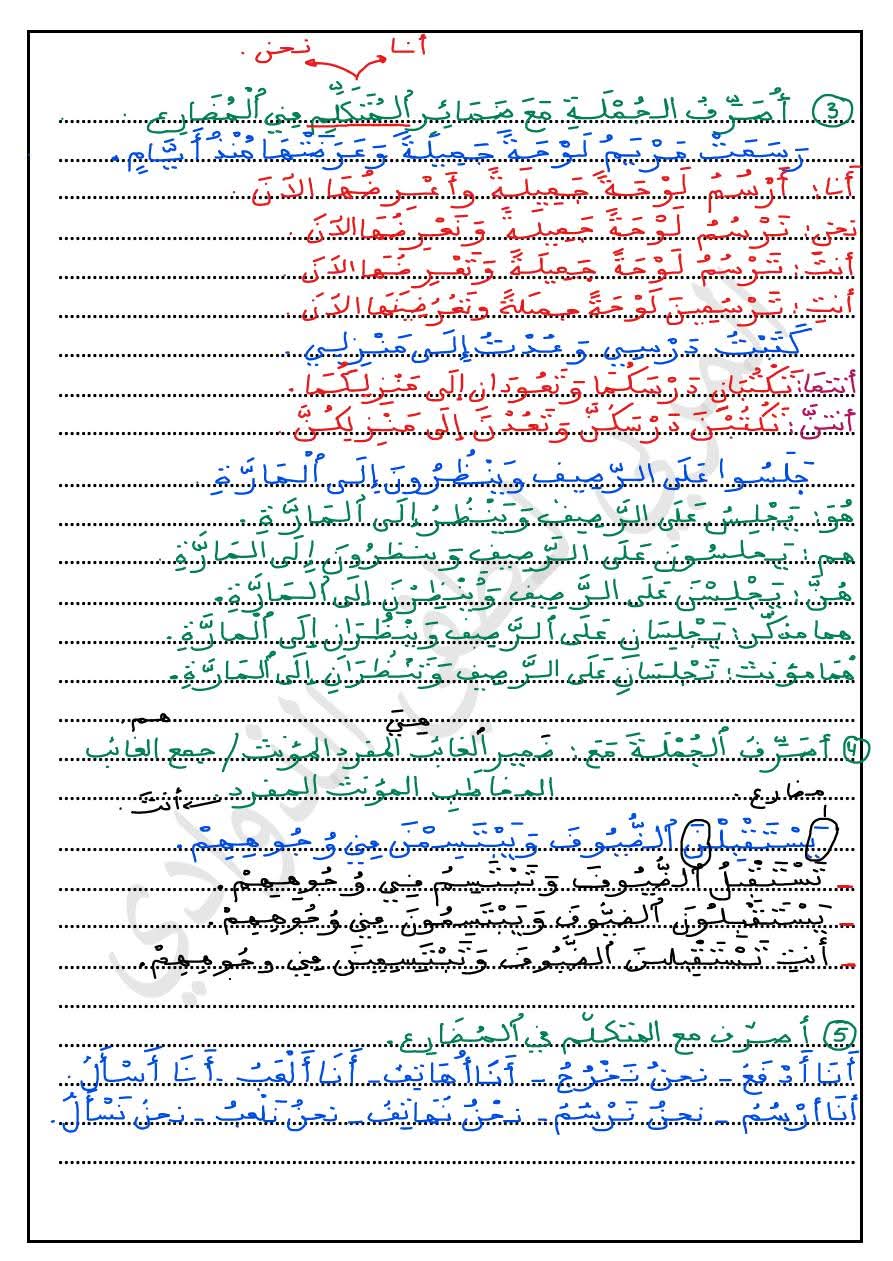 أنا نحن .
3 أُصَرِّفُ الجُمْلَةَ مَعَ ضَمَائِرِ المُتَكَلِّمِ فِي الْمُضَارِعِ .
رَسَمَتْ مَرْيَمُ لَوْحَةً جَمِيلَةً وَعَرَضَتْهَا مُنْذُ أَيَّامٍ .
أَنَا : أَرْسُمُ لَوْحَةً جَمِيلَةً وأَعْرِضُهَا الآنَ .
نحن : نَرْسُمُ لَوْحَةً جَمِيلَةً وَنَعْرِضُهَا الآنَ .
أنتَ : تَرْسُمُ لَوْحَةً جَمِيلَةً وَتَعْرِضُهَا الآنَ .
أنتِ : تَرْسُمِينَ لَوْحَةً جميلةً وتَعْرِضِينَهَا الآنَ .
كَتَبْتُ دَرْسِي وَعُدْتُ إِلَى مَنْزِلِي .
أنتما : تَكْتُبَانِ دَرْسَكُمَا وَتَعُودَانِ إلَى مَنْزِلِكُمَا .
أنتنَّ : تَكْتُبْنَ دَرْسَكُنَّ وَتَعُدْنَ إلَى مَنْزِلِكُنَّ .
جَلَسُوا عَلَى الرَّصِيفِ وَيَنْظُرُونَ إِلَى الْمَارَّةِ .
هُوَ : يَجْلِسُ عَلَى الرَّصِيفِ وَيَنْظُرُ إِلَى المَارَّةِ .
هم : يَجلسُونَ عَلَى الرَّصِيفِ وَينظرُونَ إِلَى المَارَّةِ .
هُنَّ : يَجْلِسْنَ عَلَى الرَّصِيفِ وَيَنْظُرْنَ إلَى المَارَّةِ .
هما مذكّر : يَجْلِسَانِ عَلَى الرَّصِيفِ وَيَنْظُرَانِ إِلَى الْمَارَّةِ .
هُمَا مؤنث : تَجْلِسَانِ عَلَى الرَّصِيفِ وَتَنْظُرَانِ إِلَى المَارَّةِ .
هيَ هم .
4 أُصَرِّفُ الجُمْلَةَ مَعَ : ضَميرِ الغَائبِ المفردِ المؤنث / جمع الغائب
المخاطبِ المؤنثِ المفرد . أنتِ . مضارع .
يَسْتَقْبِلْنَ الضُّيُوفَ وَيَبْتَسِمْنَ فِي وُجُوهِهِمْ .
- تَسْتَقْبِلُ الضُّيُوفَ وَتَبْتَسِمُ فِي وُجُوهِهِمْ .
- يَسْتَقْبِلُونَ الضيُّوفَ وَيَبْتَسِمُونَ فِي وُجُوهِهِمْ .
- أنتِ تَسْتَقْبِلينَ الضُّيُوفَ وَتَبْتَسِمِينَ فِي وجُوهِهِمْ .
5 أصرّف مع المتكلّم في المُضَارِع .
أَنَا أَدْفَعُ - نحنُ نَخْرُجُ - أَنَا أُهَاتِفُ - أَنَا أَلْعَبُ - أَنَا أَسْأَلُ .
أنَا أَرْسُمُ - نحنُ نَرْسُمُ - نحْنُ نُهَاتِفُ - نحنُ نَلْعبُ - نحنُ نَسْأَلُ .